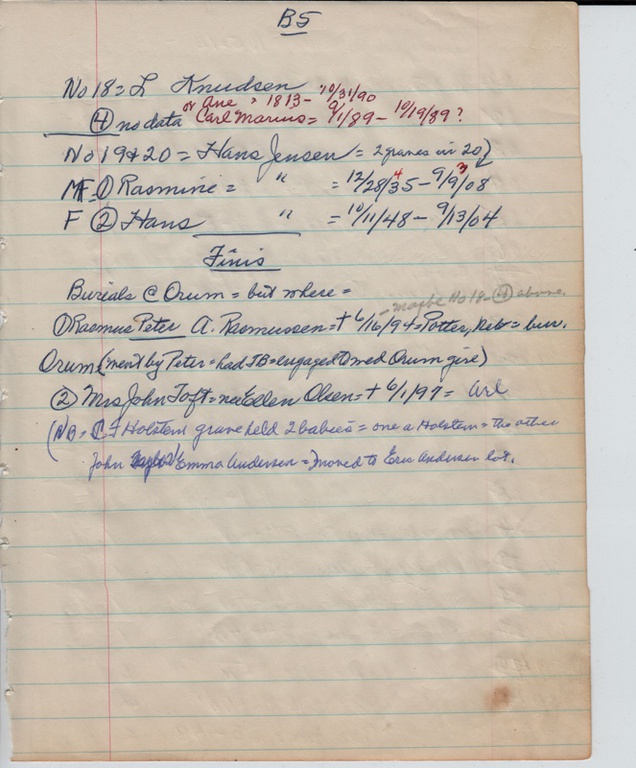 B5
No 18 = L Knudsen
or Ane " 1813 - 10/31/90
④ no data Carl Marius = 9/1/89 - 10/19/89?
No 19+20 = Hans Jensen = 2 graves in 20)
F ① Rasmine = " = 12/28/35 4 - 9/9/08 3
F ② Hans " = 10/11/48 - 9/13/04
Finis
Burials @ Orum = but where =
- maybe No 18 - ④ above.
① Rasmus Peter A. Rasmussen = + 6/16/94 = Potter, Neb = bur.
Orum (went by Peter = had TB = engaged to wed Orum girl)
② Mrs John Toft = nee Ellen Olsen = + 6/1/97 =
(NB = C F Holstein grave held 2 babies = one a Holstein = the other
John Emma Andersen = moved to Eric Andersen lot.